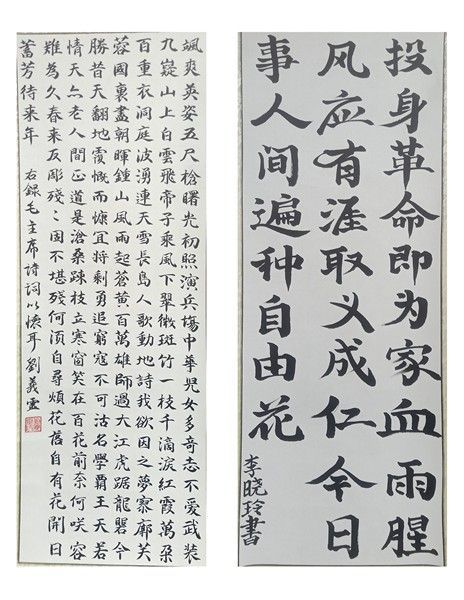 颯爽英姿五尺槍曙光初照演兵塲中華兒女多奇志不愛武装
九嶷山上白雲飛帝子乘風下翠微斑竹一枝千滴淚紅霞萬朵
百重衣洞庭波湧連天雪長島人歌動地詩我欲因之夢寥廓芙
蓉國裏盡朝暉鍾山風雨起蒼黄百萬雄師過大江虎踞龍盤今
勝昔天翻地覆慨而慷宜将剩勇追窮寇不可沽名學霸王天若
情天亦老人間正道是滄桑疎枝立寒窗笑在百花前奈何咲容
難為久春来反彫殘〻固不堪殘何須自尋煩花落自有花開日
蓄芳待来年
右錄毛主席詩詞以懷耳 劉義靈
投身革命即为家血雨腥
风应有涯取义成仁今日
事人间遍种自由花
李晓玲書